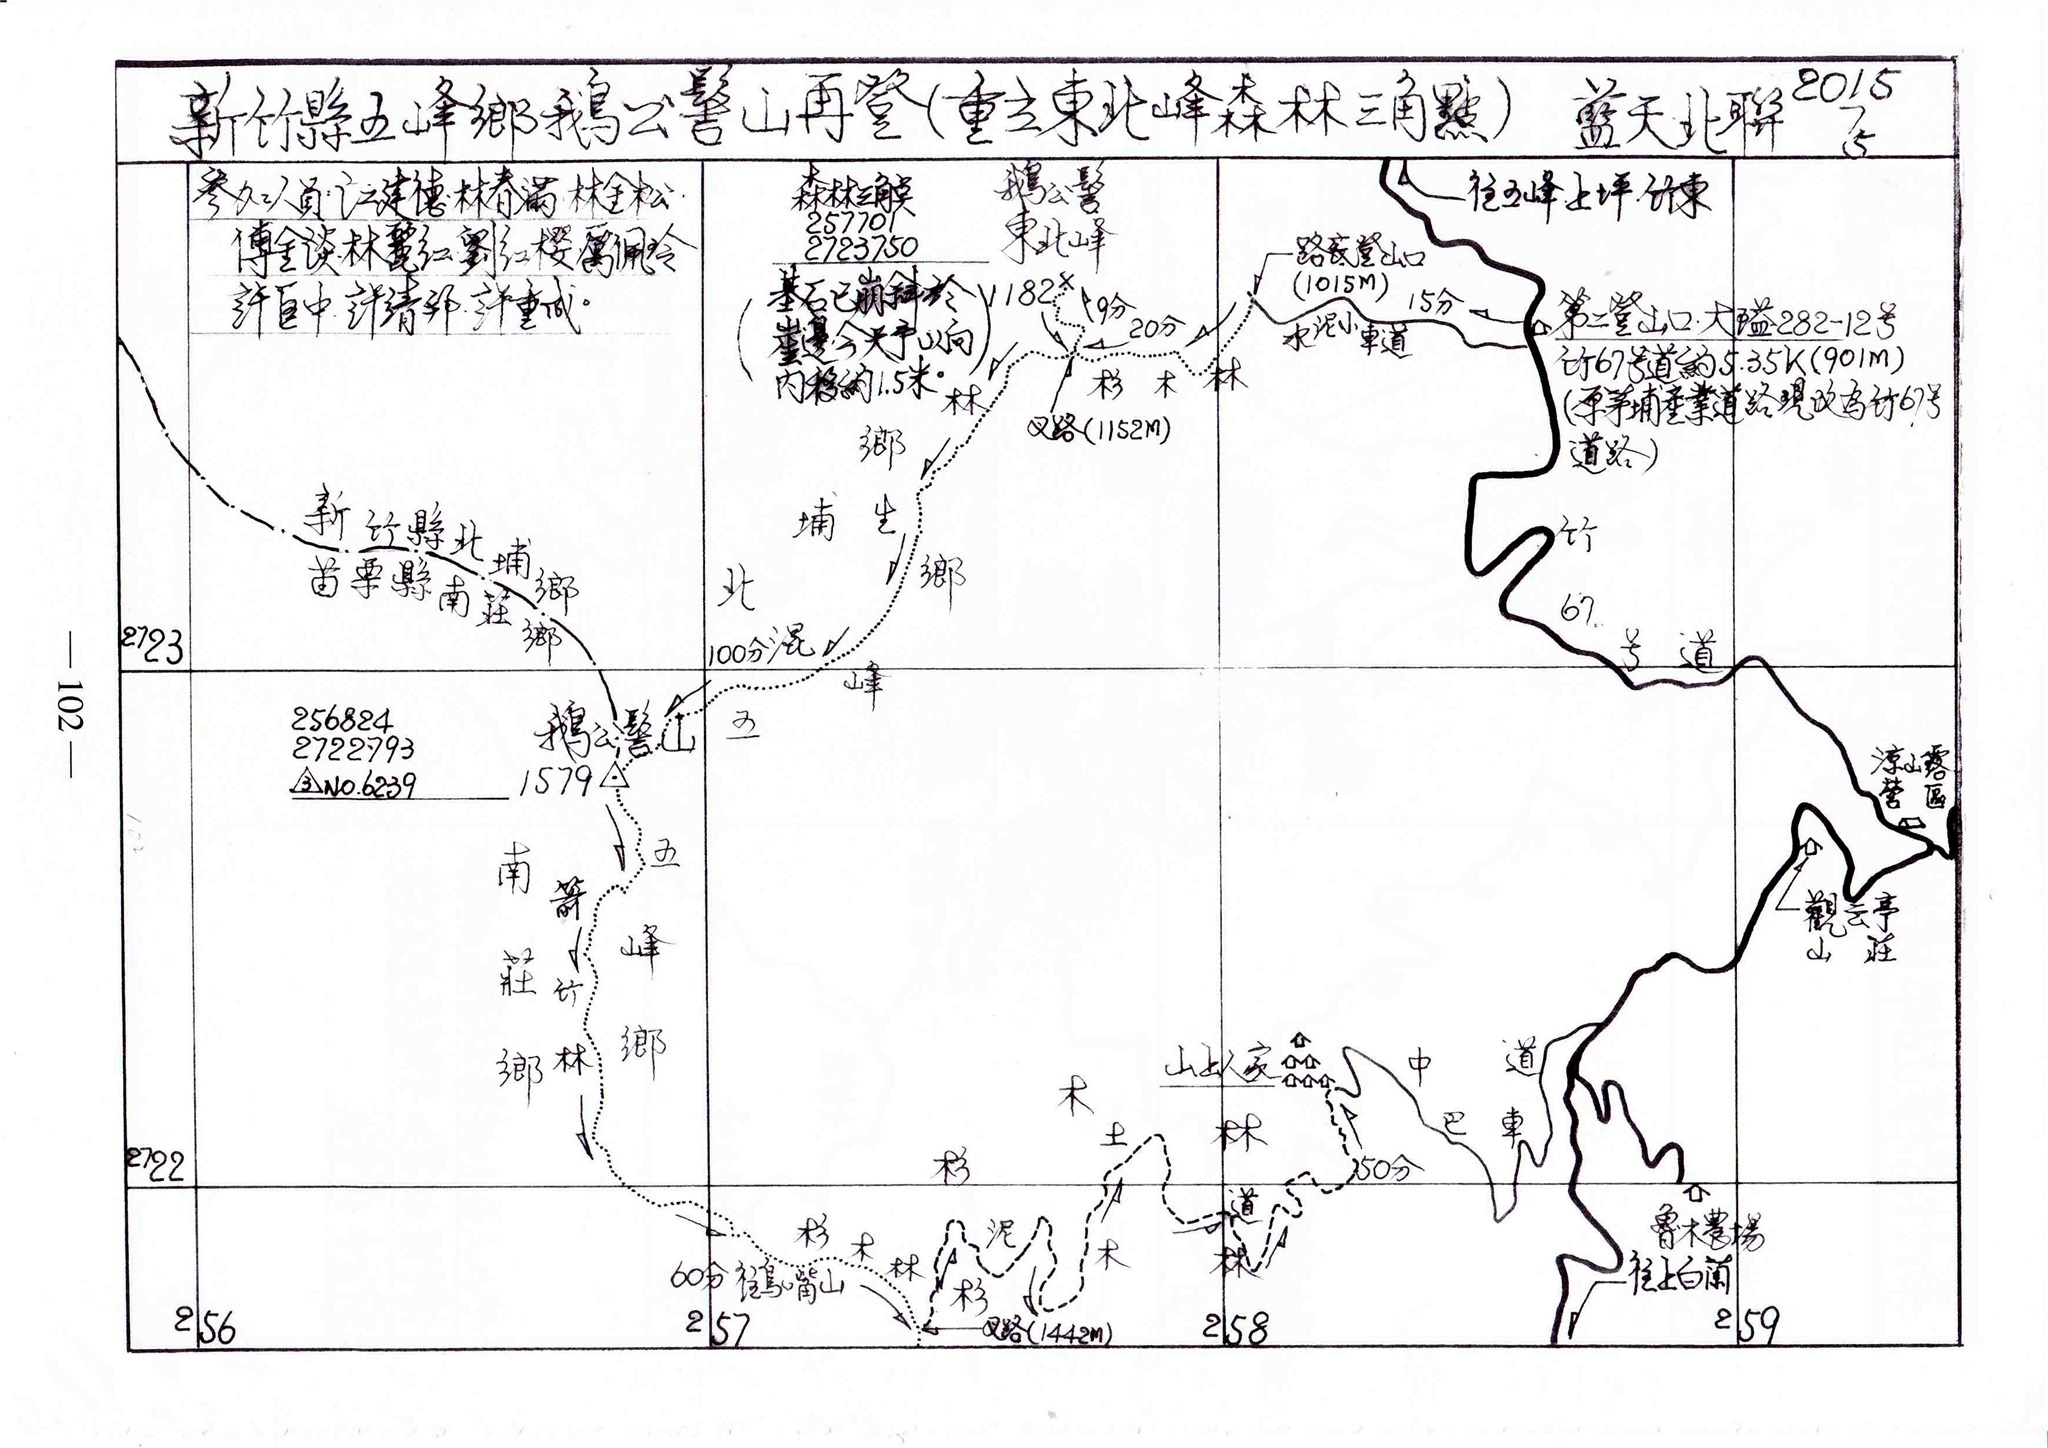 新竹縣五峰鄉鵝公髻山再登(重立東北峰森林三角點) 藍天北聯 2015 7/5
參加人員:江建德.林春滿.林全松.
傅金談.林麗紅.劉紅櫻
許巨中.許清郎.許重成。
森林三角點
257701
2723750
(基石已崩斜於
崖邊今天予以向
內移約1.5米。)
鵝公髻
東北峰
1182
9分
20分
路底登山口
(1015M)
15分
水泥小車道
往五峰.上坪.竹東
第二登山口.大隘282-12号
竹67号道約5.35K(901M)
(原茅埔產業道路現改為竹67号
道路)
叉路(1152M)
杉木林
林
北埔鄉
混生
五峰鄉
100分
竹67号道
新竹縣北埔鄉
苗栗縣南莊鄉
2723
256824
2722793
△3 NO.6239
鵝公髻山
1579
南莊鄉
箭竹林
五峰鄉
涼山露
營區
觀雲亭
山莊
山上人家
中巴車道
50分
杉木林
土
泥
道
杉木林
2722
杉木林
60分
往鳥嘴山
叉路(1442M)
魯木農場
往上白蘭
256
257
258
259
—102—